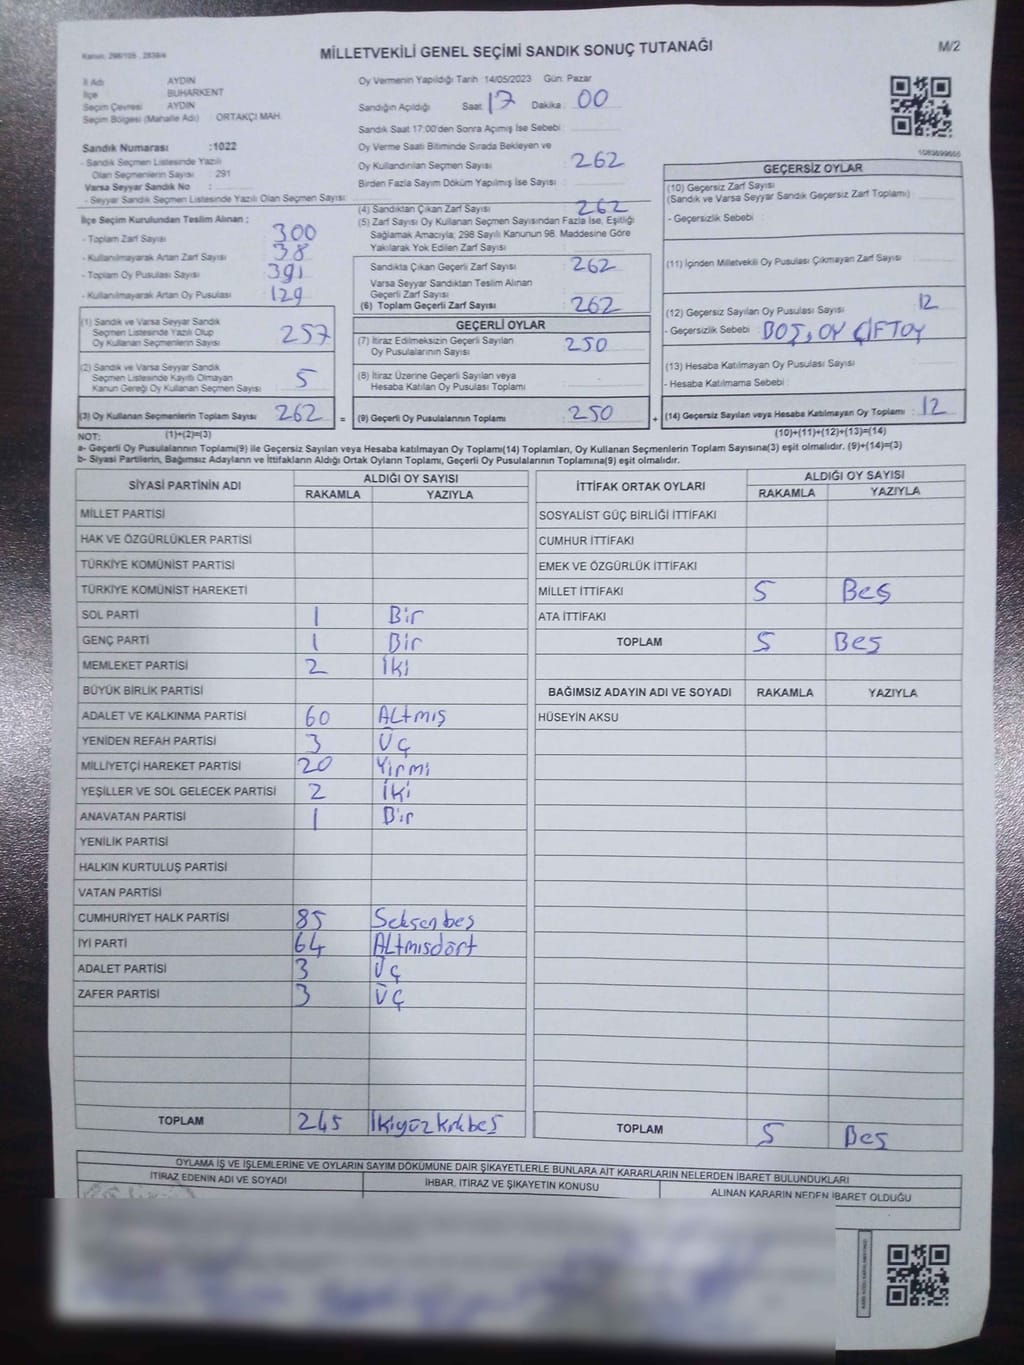 Kanun: 298/105 , 2839/4
MİLLETVEKİLİ GENEL SEÇİMİ SANDIK SONUÇ TUTANAĞI
M/2
İl Adı AYDIN
İlçe BUHARKENT
Seçim Çevresi AYDIN
Seçim Bölgesi (Mahalle Adı) : ORTAKÇI MAH.
Oy Vermenin Yapıldığı Tarih 14/05/2023 Gün: Pazar
Sandığın Açıldığı Saat 17 Dakika : 00
Sandık Saat 17:00'den Sonra Açımış İse Sebebi :
Sandık Numarası :1022
- Sandık Seçmen Listesinde Yazılı
Olan Seçmenlerin Sayısı : 291
Varsa Seyyar Sandık No :
- Seyyar Sandık Seçmen Listesinde Yazılı Olan Seçmen Sayısı :
Oy Verme Saati Bitiminde Sırada Bekleyen ve
Oy Kullandırılan Seçmen Sayısı : 262
Birden Fazla Sayım Döküm Yapılmış İse Sayısı :
İlçe Seçim Kurulundan Teslim Alınan ;
- Toplam Zarf Sayısı : 300
- Kullanılmayarak Artan Zarf Sayısı : 38
- Toplam Oy Pusulası Sayısı : 391
- Kullanılmayarak Artan Oy Pusulası : 129
(1) Sandık ve Varsa Seyyar Sandık
Seçmen Listesinde Yazılı Olup
Oy Kullanan Seçmenlerin Sayısı : 257
(2) Sandık ve Varsa Seyyar Sandık
Seçmen Listesinde Kayıtlı Olmayan
Kanun Gereği Oy Kullanan Seçmen Sayısı : 5
(3) Oy Kullanan Seçmenlerin Toplam Sayısı : 262 =
(4) Sandıktan Çıkan Zarf Sayısı : 262
(5) Zarf Sayısı Oy Kullanan Seçmen Sayısından Fazla İse, Eşitliği
Sağlamak Amacıyla; 298 Sayılı Kanunun 98. Maddesine Göre
Yakılarak Yok Edilen Zarf Sayısı :
Sandıkta Çıkan Geçerli Zarf Sayısı : 262
Varsa Seyyar Sandıktan Teslim Alınan
Geçerli Zarf Sayısı :
(6) Toplam Geçerli Zarf Sayısı : 262
GEÇERLİ OYLAR
(7) İtiraz Edilmeksizin Geçerli Sayılan
Oy Pusulalarının Sayısı : 250
(8) İtiraz Üzerine Geçerli Sayılan veya
Hesaba Katılan Oy Pusulası Toplamı :
(9) Geçerli Oy Pusulalarının Toplamı : 250 +
1083699655
GEÇERSİZ OYLAR
(10) Geçersiz Zarf Sayısı
(Sandık ve Varsa Seyyar Sandık Geçersiz Zarf Toplamı) :
- Geçersizlik Sebebi :
(11) İçinden Milletvekili Oy Pusulası Çıkmayan Zarf Sayısı :
(12) Geçersiz Sayılan Oy Pusulası Sayısı : 12
- Geçersizlik Sebebi : BOŞ, OY ÇİFTOY
(13) Hesaba Katılmayan Oy Pusulası Sayısı :
- Hesaba Katılmama Sebebi :
(14) Geçersiz Sayılan veya Hesaba Katılmayan Oy Toplamı : 12
NOT: (1)+(2)=(3) (10)+(11)+(12)+(13)=(14)
a- Geçerli Oy Pusulalarının Toplamı(9) ile Geçersiz Sayılan veya Hesaba katılmayan Oy Toplamı(14) Toplamları, Oy Kullanan Seçmenlerin Toplam Sayısına(3) eşit olmalıdır. (9)+(14)=(3)
b- Siyasi Partilerin, Bağımsız Adayların ve İttifakların Aldığı Ortak Oyların Toplamı, Geçerli Oy Pusulalarının Toplamına(9) eşit olmalıdır.
SİYASİ PARTİNİN ADI ALDIĞI OY SAYISI
RAKAMLA YAZIYLA
MİLLET PARTİSİ
HAK VE ÖZGÜRLÜKLER PARTİSİ
TÜRKİYE KOMÜNİST PARTİSİ
TÜRKİYE KOMÜNİST HAREKETİ
SOL PARTİ 1 Bir
GENÇ PARTİ 1 Bir
MEMLEKET PARTİSİ 2 İki
BÜYÜK BİRLİK PARTİSİ
ADALET VE KALKINMA PARTİSİ 60 Altmış
YENİDEN REFAH PARTİSİ 3 Üç
MİLLİYETÇİ HAREKET PARTİSİ 20 Yirmi
YEŞİLLER VE SOL GELECEK PARTİSİ 2 İki
ANAVATAN PARTİSİ 1 Bir
YENİLİK PARTİSİ
HALKIN KURTULUŞ PARTİSİ
VATAN PARTİSİ
CUMHURİYET HALK PARTİSİ 85 Seksenbeş
İYİ PARTİ 64 Altmısdört
ADALET PARTİSİ 3 Üç
ZAFER PARTİSİ 3 Üç
TOPLAM 245 İkiyüzkırkbeş
İTTİFAK ORTAK OYLARI ALDIĞI OY SAYISI
RAKAMLA YAZIYLA
SOSYALİST GÜÇ BİRLİĞİ İTTİFAKI
CUMHUR İTTİFAKI
EMEK VE ÖZGÜRLÜK İTTİFAKI
MİLLET İTTİFAKI 5 Beş
ATA İTTİFAKI
TOPLAM 5 Beş
BAĞIMSIZ ADAYIN ADI VE SOYADI RAKAMLA YAZIYLA
HÜSEYİN AKSU
TOPLAM 5 Beş
OYLAMA İŞ VE İŞLEMLERİNE VE OYLARIN SAYIM DÖKÜMÜNE DAİR ŞİKAYETLERLE BUNLARA AİT KARARLARIN NELERDEN İBARET BULUNDUKLARI
İTİRAZ EDENİN ADI VE SOYADI İHBAR, İTİRAZ VE ŞİKAYETİN KONUSU ALINAN KARARIN NEDEN İBARET OLDUĞU